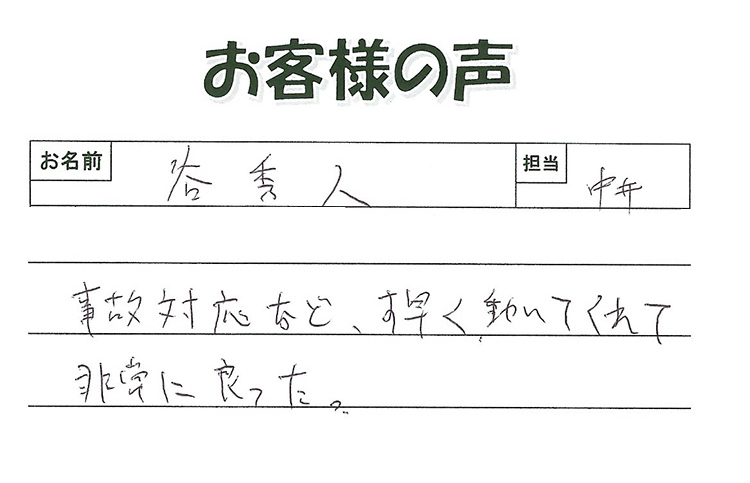 お客様の声
お名前 谷 秀人 担当 中井
事故対応など、す早く動いてくれて
非常に良った。